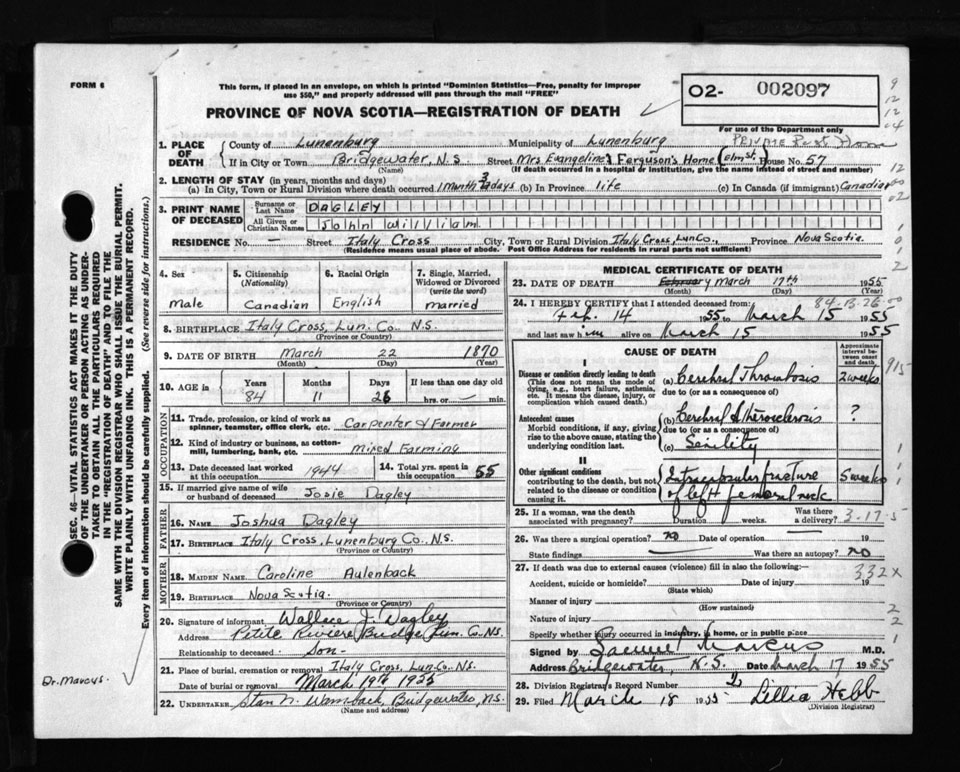 FORM 6
This form, if placed in an envelope, on which is printed "Dominion Statistics—Free, penalty for improper
use $50," and properly addressed will pass through the mail "FREE"
PROVINCE OF NOVA SCOTIA—REGISTRATION OF DEATH
O2- 002097
For use of the Department only
Private Rest Home
1. PLACE OF DEATH County of Lunenburg Municipality of Lunenburg
If in City or Town Bridgewater, N.S. Street Mrs Evangeline Ferguson's Home (Elm St.) House No. 57
(Name) (If death occurred in a hospital or institution, give the name instead of street)
2. LENGTH OF STAY (in years, months and days)
(a) In City, Town or Rural Division where death occurred 1 month 3 days (b) In Province life (c) In Canada (if immigrant) Canadian
3. PRINT NAME OF DECEASED Surname or Last Name DAGLEY
All Given or Christian Names John William
RESIDENCE No. — Street Italy Cross City, Town or Rural Division Italy Cross, Lun Co., Province Nova Scotia.
(Residence means usual place of abode. Post Office Address for residents in rural parts not sufficient)
4. Sex Male
5. Citizenship (Nationality) Canadian
6. Racial Origin English
7. Single, Married, Widowed or Divorced (write the word) married
8. BIRTHPLACE Italy Cross, Lun. Co. N.S.
(Province or Country)
9. DATE OF BIRTH March 22 1870
(Month) (Day) (Year)
10. AGE in Years 84 Months 11 Days 26 If less than one day old hrs. or min.
OCCUPATION
11. Trade, profession, or kind of work as spinner, teamster, office clerk, etc. Carpenter & Farmer
12. Kind of industry or business, as cotton-mill, lumbering, bank, etc. Mixed Farming
13. Date deceased last worked at this occupation 1944
14. Total yrs. spent in this occupation 55
15. If married give name of wife or husband of deceased Josie Dagley
FATHER
16. NAME Joshua Dagley
17. BIRTHPLACE Italy Cross, Lunenburg Co., N.S.
(Province or Country)
MOTHER
18. MAIDEN NAME Caroline Aulenback
19. BIRTHPLACE Nova Scotia.
(Province or Country)
20. Signature of informant Wallace J. Dagley
Address Petite Riviere Bridge, Lun. Co. N.S.
Relationship to deceased Son-
21. Place of burial, cremation or removal Italy Cross, Lun. Co. N.S.
Date of burial or removal March 19th 1955
22. UNDERTAKER Stan N. Wamback, Bridgewater, N.S.
(Name and address)
MEDICAL CERTIFICATE OF DEATH
23. DATE OF DEATH March 17th 1955
(Month) (Day) (Year)
84-B-26-00
24. I HEREBY CERTIFY that I attended deceased from:
Feb. 14 1955 to March 15 1955
and last saw him alive on March 15 1955
CAUSE OF DEATH
Approximate interval between onset and death
I
Disease or condition directly leading to death (This does not mean the mode of dying, e.g., heart failure, asthenia, etc. It means the disease, injury, or complication which caused death.)
(a) Cerebral Thrombosis 2 weeks
due to (or as a consequence of)
Antecedent causes
Morbid conditions, if any, giving rise to the above cause, stating the underlying condition last.
(b) Cerebral Atherosclerosis ?
due to (or as a consequence of)
(c) Senility
II
Other significant conditions contributing to the death, but not related to the disease or condition causing it.
Intracapsular fracture of left femoral neck 5 weeks
25. If a woman, was the death associated with pregnancy? Duration weeks. Was there a delivery?
3-17-5
26. Was there a surgical operation? no Date of operation 19
State findings Was there an autopsy? no
27. If death was due to external causes (violence) fill in also the following:—
332x
Accident, suicide or homicide? Date of injury 19
(State which)
Manner of injury
(How sustained)
Nature of injury
Specify whether injury occurred in industry, in home, or in public place
Signed by Samuel Marcus M.D.
Address Bridgewater, N.S. Date March 17 1955
28. Division Registrar's Record Number
29. Filed March 18 1955 Lillia Hebb
(Division Registrar)
SEC. 46—VITAL STATISTICS ACT MAKES IT THE DUTY
OF THE UNDERTAKER OR PERSON ACTING AS UNDER-
TAKER TO OBTAIN ALL THE PARTICULARS REQUIRED
IN THE "REGISTRATION OF DEATH" AND TO FILE THE
SAME WITH THE DIVISION REGISTRAR WHO SHALL ISSUE THE BURIAL PERMIT.
WRITE PLAINLY WITH UNFADING INK. THIS IS A PERMANENT RECORD.
Every item of information should be carefully supplied. (See reverse side for instructions.)
Dr. Marcus.